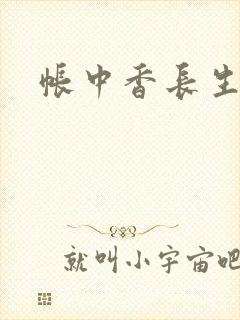 帳中香長生
就叫小宇宙吧